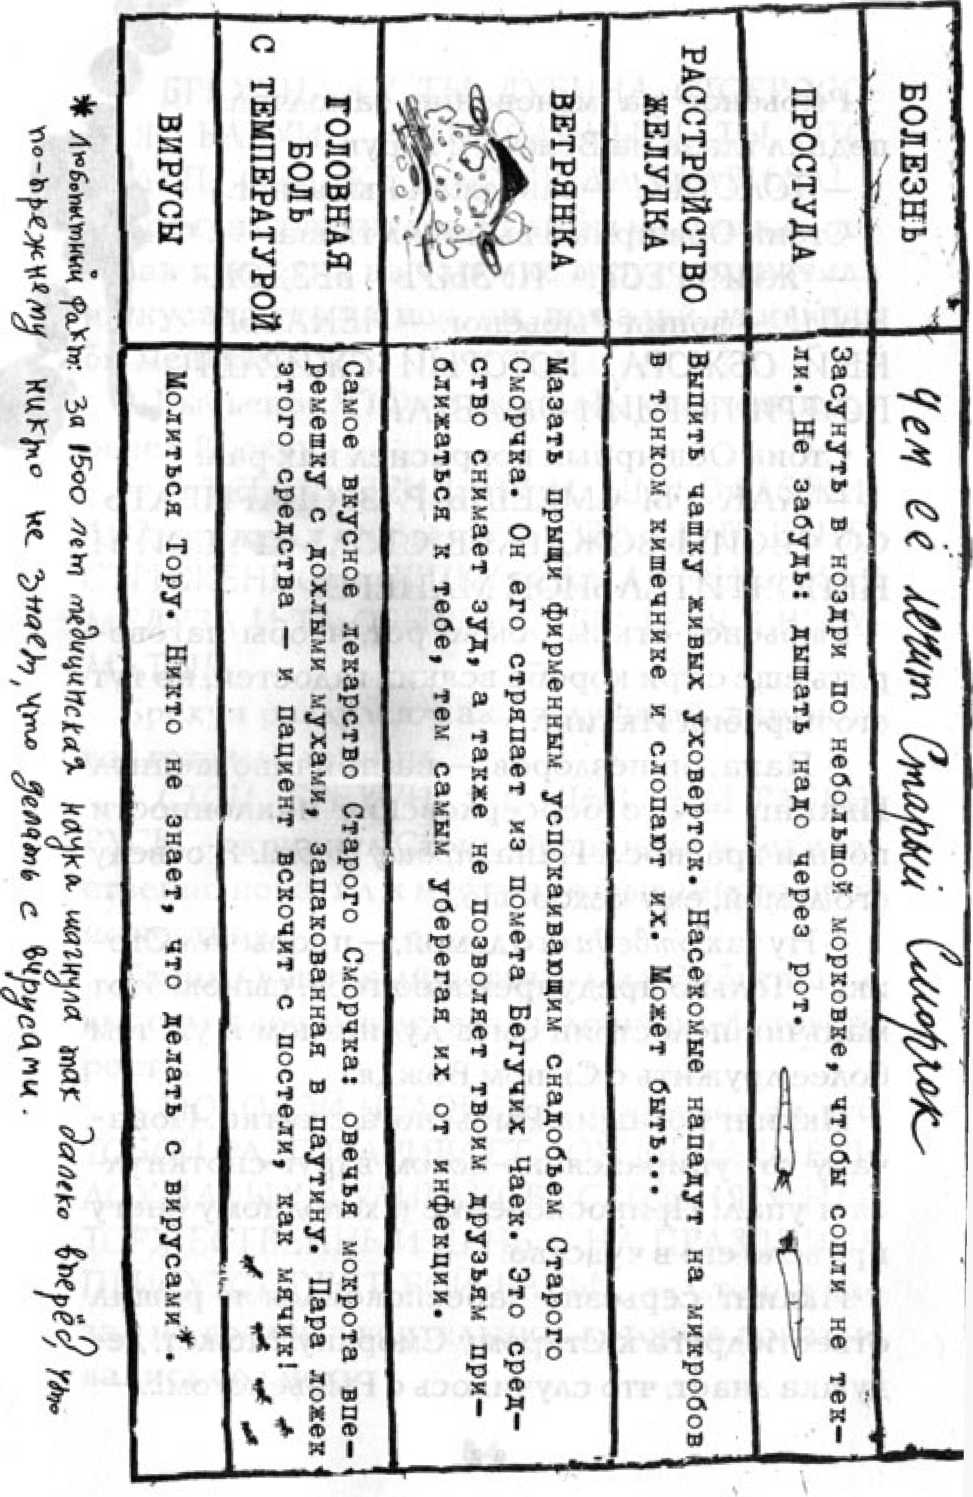 БОЛЕЗНЬ
Чем её лечит Старый Сморчак
ПРОСТУДА
Засунуть в ноздри по небольшой морковке, чтобы сопли не тек-
ли. Не забудь: дышать надо через рот.
РАССТРОЙСТВО
ЖЕЛУДКА
Выпить чашку живых уховерток. Насекомые нападут на микробов
в тонком кишечнике и слопают их. Может быть...
ВЕТРЯНКА
Мазать прыщи фирменным успокаивающим снадобьем Старого
Сморчка. Он его стряпает из помета Бегучих Цаек. Это сред-
ство снимает зуд, а также не позволяет твоим друзьям при-
ближаться к тебе, тем самым уберегая их от инфекции.
ГОЛОВНАЯ
БОЛЬ
С ТЕМПЕРАТУРОЙ
Самое вкусное лекарство Старого Сморчка: овечья мокрота впе-
ремешку с дохлыми мухами, запакованная в паутину. Пара ложек
этого средства – и пациент вскочит с постели, как мячик!
ВИРУСЫ
Молиться Тору. Никто не знает, что делать с вирусами*.
* Любопытный факт: за 1500 лет медицинская наука шагнула так далеко вперёд, что
по-прежнему никто не знает, что делать с вирусами.